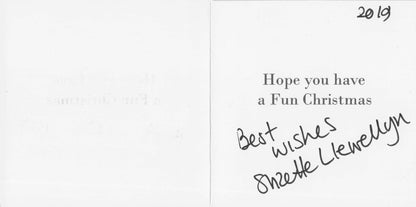 2019
Hope you have
a Fun Christmas
Best
wishes
Suzette Llewellyn